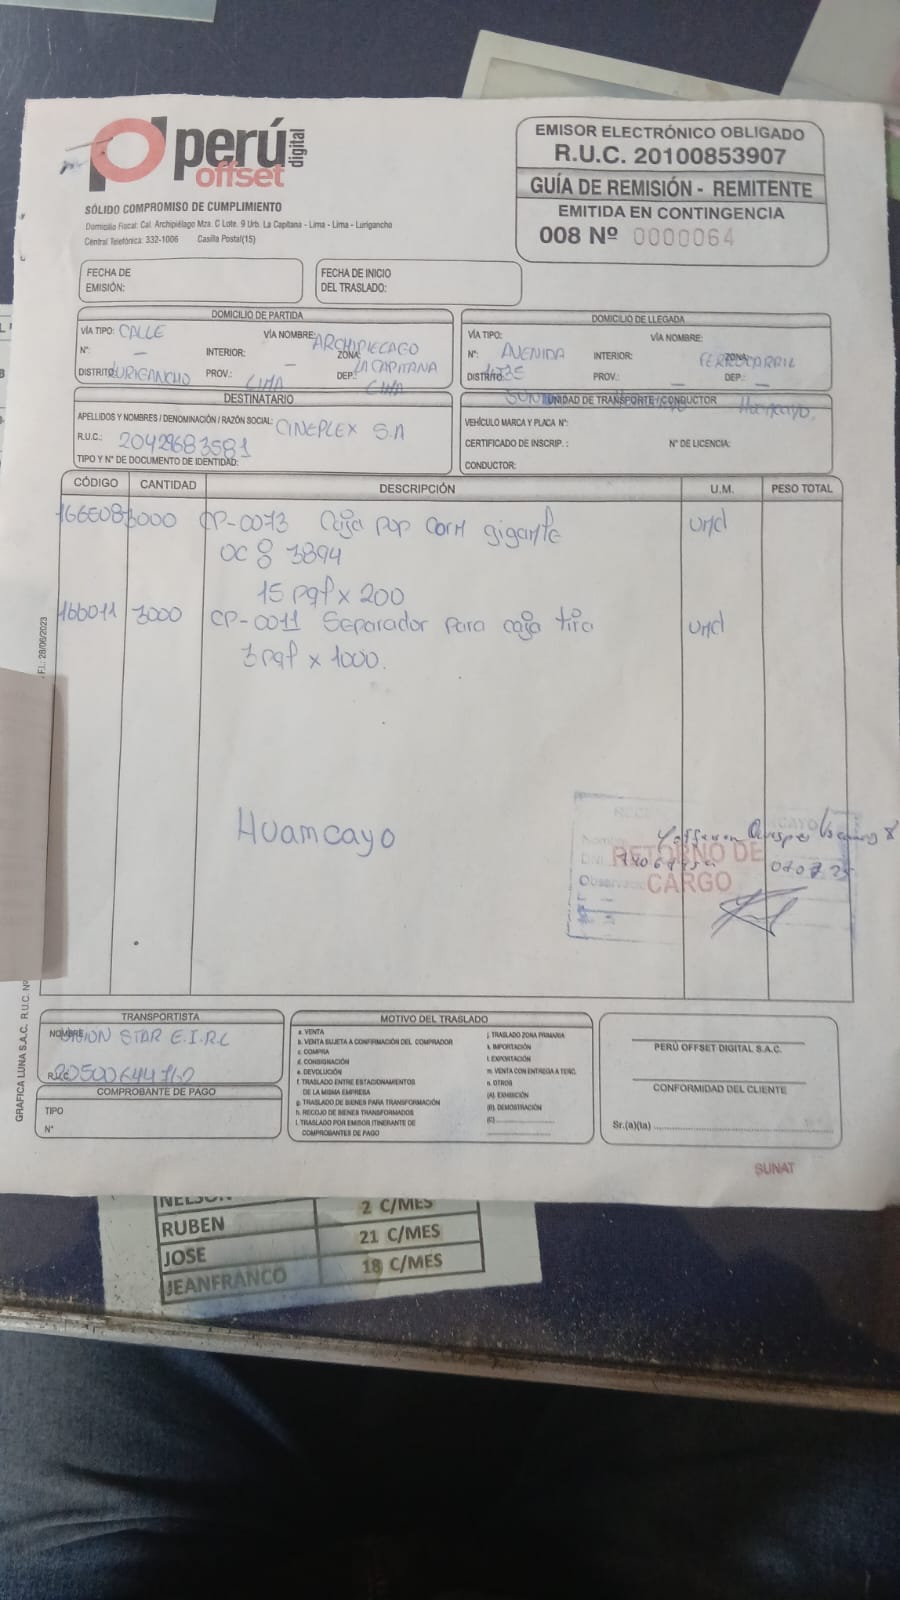 perú
offset
digital
SÓLIDO COMPROMISO DE CUMPLIMIENTO
Domicilio Fiscal: Cal. Archipiélago Mza. C Lote. 9 Urb. La Capitana - Lima - Lima - Lurigancho
Central Telefónica: 332-1006 Casilla Postal(15)
EMISOR ELECTRÓNICO OBLIGADO
R.U.C. 20100853907
GUÍA DE REMISIÓN - REMITENTE
EMITIDA EN CONTINGENCIA
008 Nº 0000064
FECHA DE EMISIÓN:
FECHA DE INICIO DEL TRASLADO:
DOMICILIO DE PARTIDA
VÍA TIPO: CALLE VÍA NOMBRE: ARCHIPIELAGO
N°: — INTERIOR: — ZONA: LA CAPITANA
DISTRITO: LURIGANCHO PROV.: LIMA DEP.: LIMA
DOMICILIO DE LLEGADA
VÍA TIPO: AVENIDA VÍA NOMBRE: FERROCARRIL
N°: 1035 INTERIOR: — ZONA: —
DISTRITO: PROV.: DEP.: Huancayo
DESTINATARIO
APELLIDOS Y NOMBRES / DENOMINACIÓN / RAZÓN SOCIAL: CINEPLEX S.A
R.U.C.: 20429683581
TIPO Y N° DE DOCUMENTO DE IDENTIDAD:
UNIDAD DE TRANSPORTE / CONDUCTOR
VEHÍCULO MARCA Y PLACA N°:
CERTIFICADO DE INSCRIP. : N° DE LICENCIA:
CONDUCTOR:
CÓDIGO CANTIDAD DESCRIPCIÓN U.M. PESO TOTAL
3000 CP-0073 Caja pop corn gigante und
OC 8 3894
15 pqt x 200
166011 3000 CP-0011 Separador para caja tira und
3 pqt x 1000.
Huamcayo
RETORNO DE
CARGO
F.I.: 28/06/2023
GRAFICA LUNA S.A.C. R.U.C. N°
TRANSPORTISTA
NOMBRE: STAR E.I.R.L
R.U.C.
COMPROBANTE DE PAGO
TIPO
N°
MOTIVO DEL TRASLADO
a. VENTA
b. VENTA SUJETA A CONFIRMACIÓN DEL COMPRADOR
c. COMPRA
d. CONSIGNACIÓN
e. DEVOLUCIÓN
f. TRASLADO ENTRE ESTACIONAMIENTOS
DE LA MISMA EMPRESA
g. TRASLADO DE BIENES PARA TRANSFORMACIÓN
h. RECOJO DE BIENES TRANSFORMADOS
i. TRASLADO POR EMISOR ITINERANTE DE
COMPROBANTES DE PAGO
j. TRASLADO ZONA PRIMARIA
k. IMPORTACIÓN
l. EXPORTACIÓN
m. VENTA CON ENTREGA A TERC.
n. OTROS
(A). EXHIBICIÓN
(B). DEMOSTRACIÓN
(C)
PERÚ OFFSET DIGITAL S.A.C.
CONFORMIDAD DEL CLIENTE
Sr.(a)(ita)
SUNAT
NELSON 2 C/MES
RUBEN 21 C/MES
JOSE 18 C/MES
JEANFRANCO